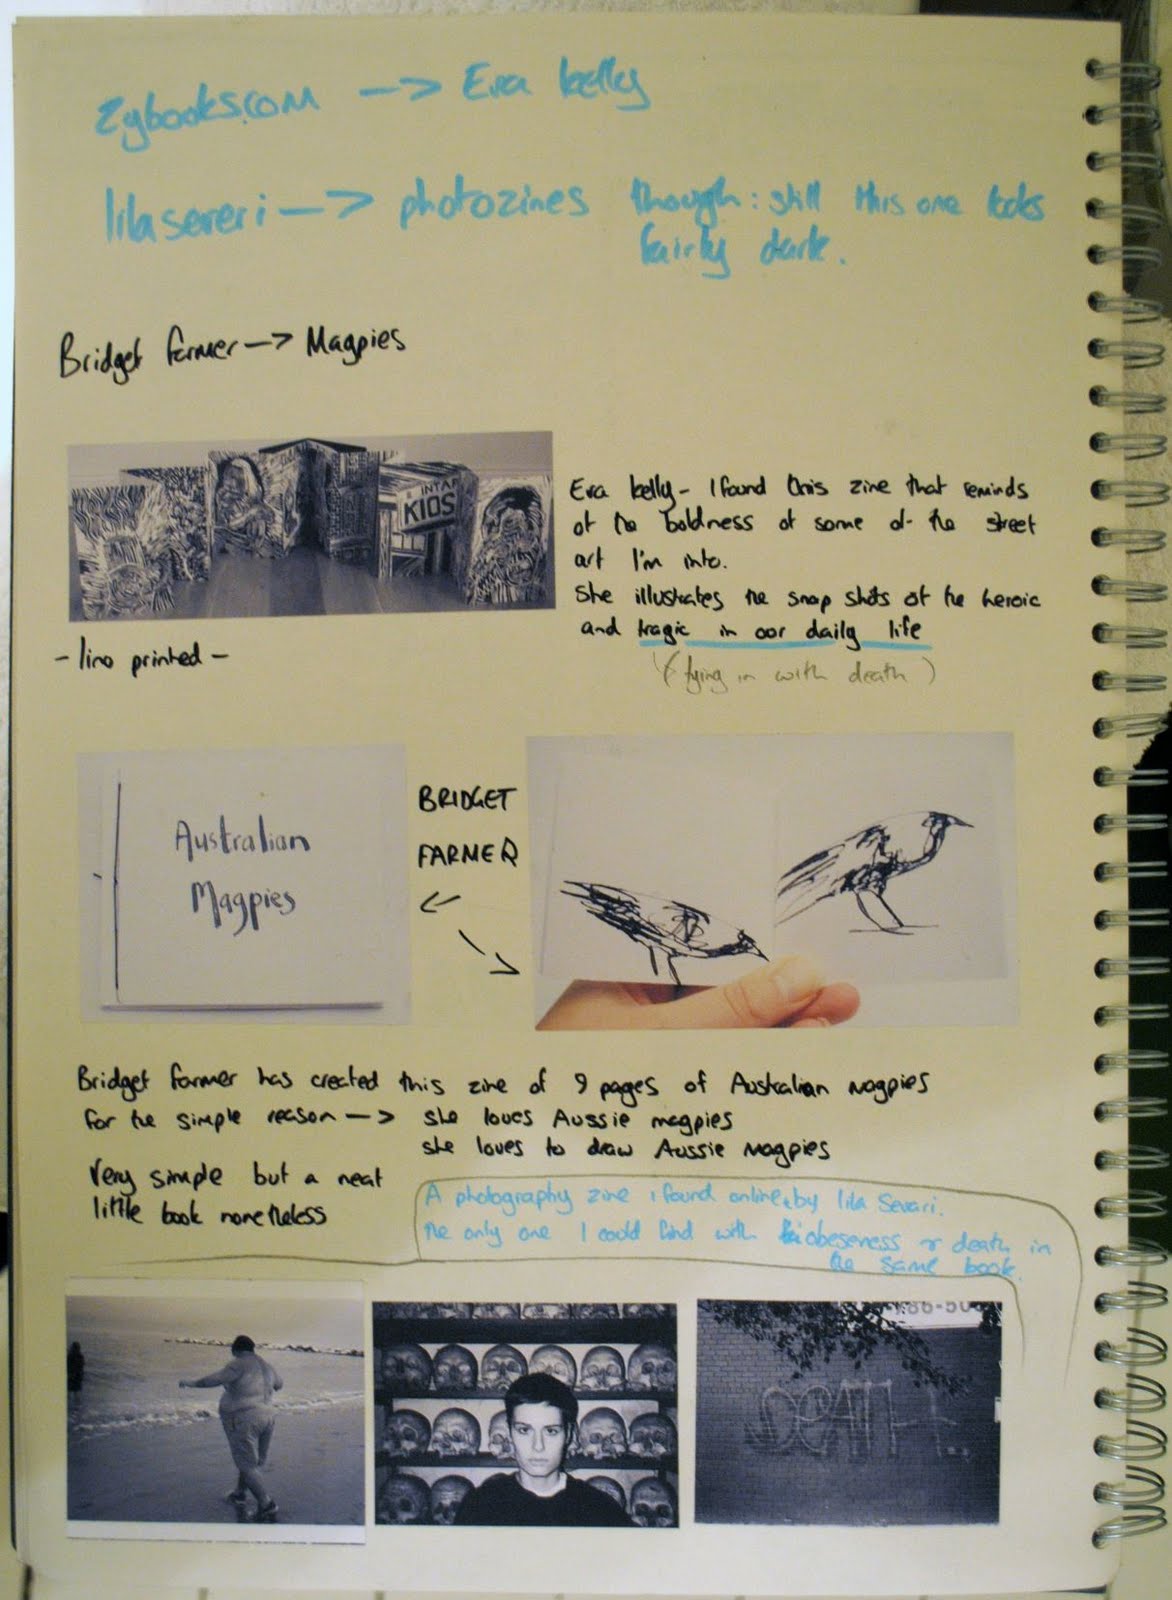 Zybooks.com —> Eva kelly
lilasereri —> photozines though: still this one looks
fairly dark.
Bridget farmer —> Magpies
INTAF
KIDS
Eva kelly - I found this zine that reminds
of the boldness of some of the street
art I'm into.
She illustrates the snap shots of the heroic
and tragic in our daily life
(tying in with death)
- lino printed -
Australian
Magpies
BRIDGET
FARMER
Bridget farmer has created this zine of 9 pages of Australian magpies
for the simple reason —> she loves Aussie magpies
she loves to draw Aussie Magpies
Very simple but a neat
little book nonetheless
A photography zine i found online by lila Severi.
the only one I could find with obeseness & death in
the same book.
86-50
DEATH